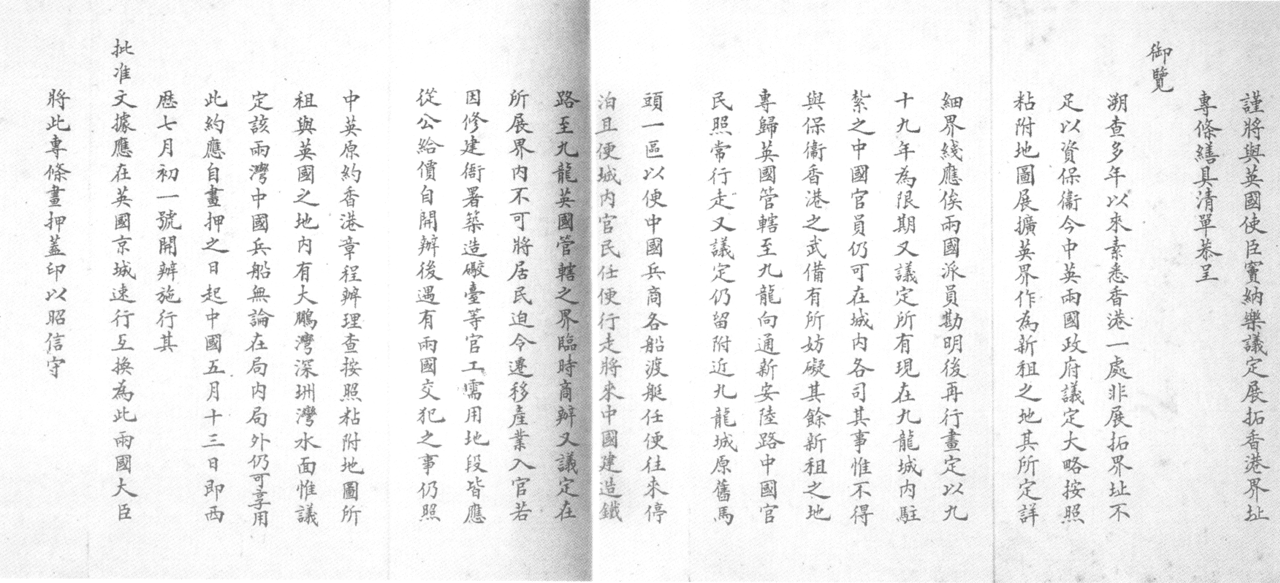 謹將與英國使臣竇納樂議定展拓香港界址
專條繕具清單恭呈
御覽
溯查多年以來素悉香港一處非展拓界址不
足以資保衞今中英兩國政府議定大略按照
粘附地圖展擴英界作為新租之地其所定詳
細界綫應俟兩國派員勘明後再行畫定以九
十九年為限期又議定所有現在九龍城內駐
紮之中國官員仍可在城內各司其事惟不得
與保衞香港之武備有所妨礙其餘新租之地
專歸英國管轄至九龍向通新安陸路中國官
民照常行走又議定仍留附近九龍城原舊馬
頭一區以便中國兵商各船渡艇任便往來停
泊且便城內官民任便行走將來中國建造鐵
路至九龍英國管轄之界臨時商辦又議定在
所展界內不可將居民迫令遷移產業入官若
因修建衙署築造礮臺等官工需用地段皆應
從公給價自開辦後遇有兩國交犯之事仍照
中英原約香港章程辦理查按照粘附地圖所
租與英國之地內有大鵬灣深圳灣水面惟議
定該兩灣中國兵船無論在局內局外仍可享用
此約應自畫押之日起中國五月十三日即西
歷七月初一號開辦施行其
批准文據應在英國京城速行互換為此兩國大臣
將此專條畫押蓋印以昭信守